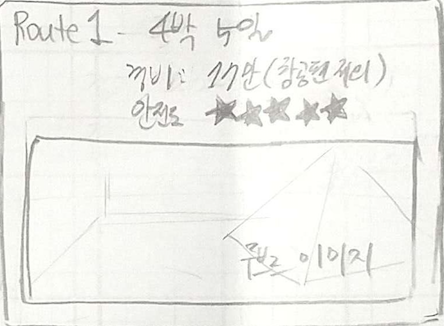 Route 1 - 4박 5일
경비: 17만 (항공편 처리)
안전도 ★★★★★
이미지